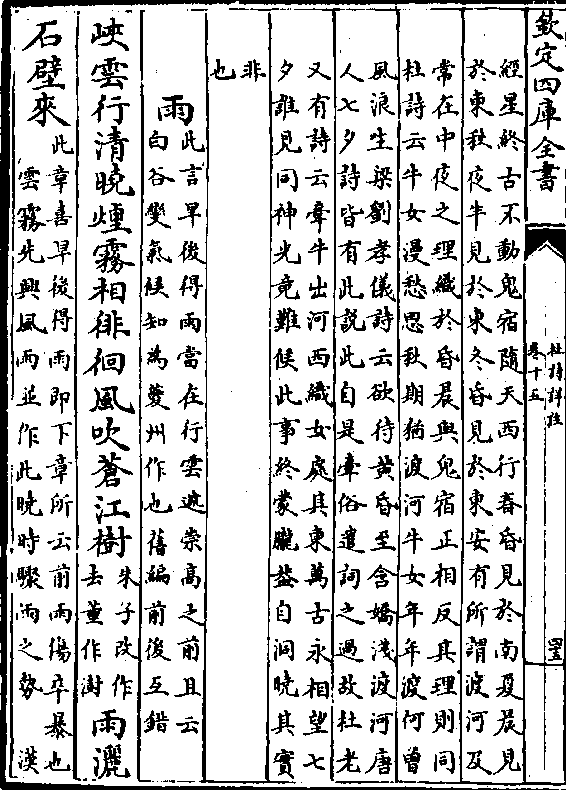 欽定四庫全書
杜詩詳註
卷十五
經星終古不動鬼宿隨天西行春昏見於南夏晨見
於東秋夜半見於東冬昏見於東安有所謂渡河及
常在中夜之理織於昏晨與鬼宿正相反其理則同
杜詩云牛女漫愁思秋期猶渡河牛女年年渡何曾
風浪生梁劉孝儀詩云欲待黃昏至含嬌淺渡河唐
人七夕詩皆有此説此自是牽俗遣詞之過故杜老
又有詩云牽牛出河西織女處其東萬古永相望七
夕誰見同神光竟難候此事終蒙朧葢自洞曉其實
非
也
雨
此言早後得雨當在行雲遞崇高之前且云
白谷變氣候知為夔州作也舊編前後互錯
峽雲行清曉煙霧相徘徊風吹蒼江樹
朱子改作
去董作澍
雨灑
石壁來
此章喜早後得雨即下章所云前雨傷卒暴也
雲霧先興風雨並作此曉時驟雨之勢 漢